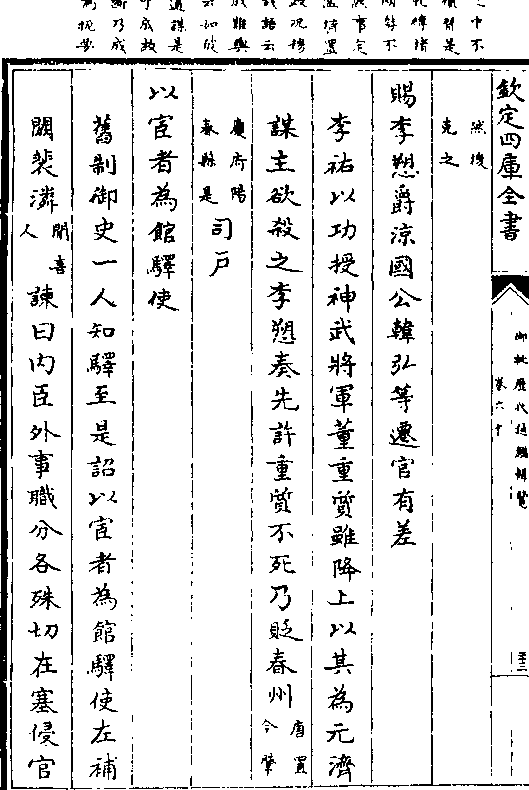 欽定四庫全書
御批歷代通鑑輯覽
卷六十
然後
克之
賜李愬爵涼國公韓弘等遷官有差
李祐以功授神武將軍董重質雖降上以其為元濟
謀主欲殺之李愬奏先許重質不死乃貶春州唐置今肇
慶府陽春縣是司戶
以宦者為館驛使
舊制御史一人知驛至是詔以宦者為館驛使左補
闕裴潾聞喜人諫曰內臣外事職分各殊切在塞侵官